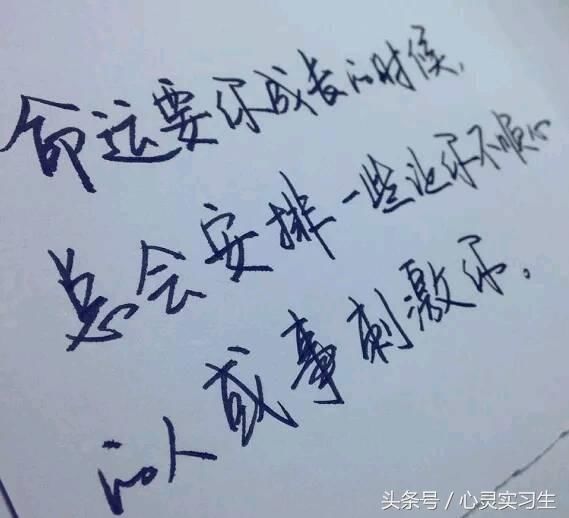 命运要你成长的时候,
总会安排一些让你不顺心
的人或事刺激你。
头条号／心灵实习生